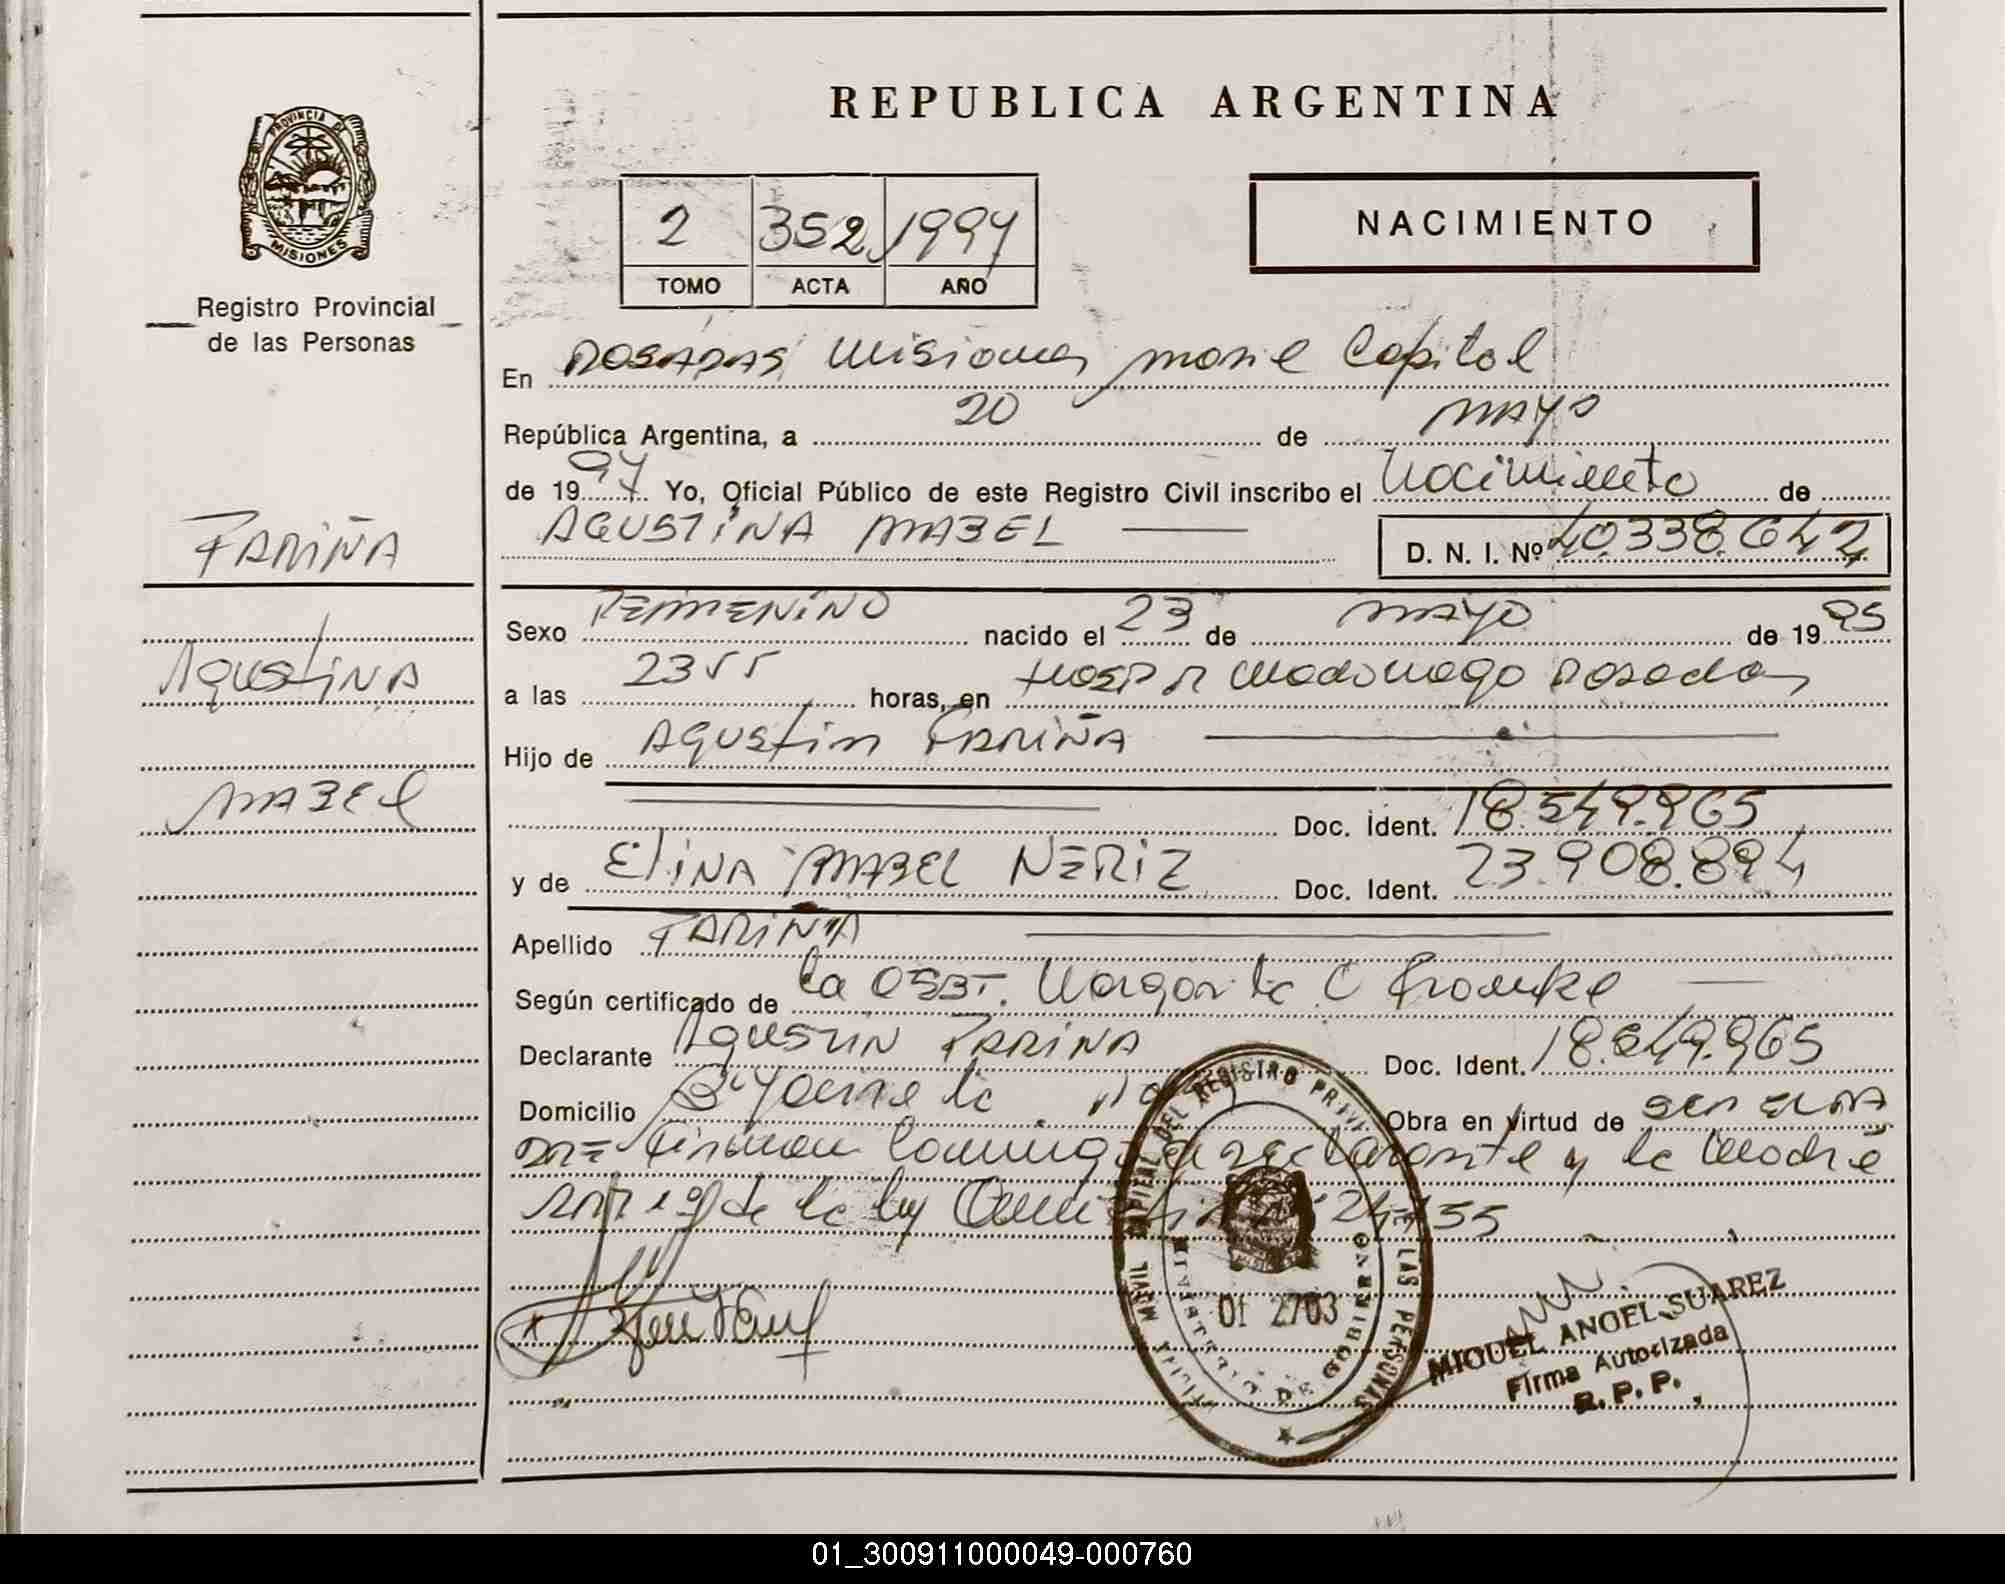 REPUBLICA ARGENTINA
PROVINCIA DE
MISIONES
Registro Provincial
de las Personas
2 352 1997
TOMO ACTA AÑO
NACIMIENTO
En POSADAS Misiones movil Capital
República Argentina, a 20 de MAYO
de 1997 Yo, Oficial Público de este Registro Civil inscribo el Nacimiento de
AGUSTINA MABEL
D. N. I. Nº 40.338.642
FARIÑA
AGUSTINA
MABEL
Sexo FEMENINO nacido el 23 de MAYO de 1995
a las 2355 horas, en Hosp R Madariaga Posadas
Hijo de AGUSTIN FARIÑA
Doc. Ident. 18.549.965
y de ELINA MABEL NERIZ Doc. Ident. 23.908.894
Apellido FARIÑA
Según certificado de la OBST. Margarita C
Declarante AGUSTIN FARIÑA Doc. Ident. 18.549.965
Domicilio Bº Obra en virtud de SER EL PA
DRE Firman conmigo el declarante y la Madre
de la ley
MOVIL DEL REGISTRO PROVINCIAL DE LAS PERSONAS
MINISTERIO DE GOBIERNO
Of 2703
MIGUEL ANGEL SUAREZ
Firma Autorizada
R. P. P.
01_300911000049-000760